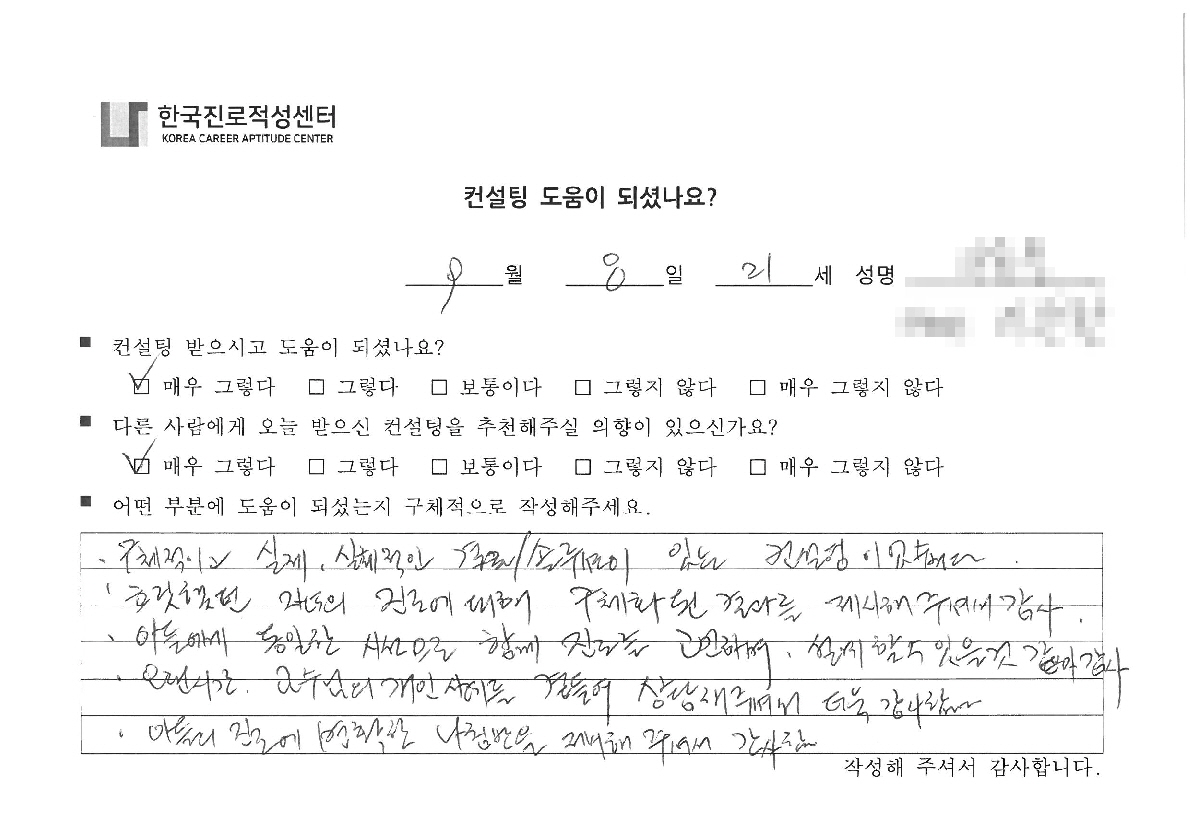 한국진로적성센터
KOREA CAREER APTITUDE CENTER
컨설팅 도움이 되셨나요?
9월 8일 21세 성명
■ 컨설팅 받으시고 도움이 되셨나요?
☑ 매우 그렇다 □ 그렇다 □ 보통이다 □ 그렇지 않다 □ 매우 그렇지 않다
■ 다른 사람에게 오늘 받으신 컨설팅을 추천해주실 의향이 있으신가요?
☑ 매우 그렇다 □ 그렇다 □ 보통이다 □ 그렇지 않다 □ 매우 그렇지 않다
■ 어떤 부분에 도움이 되셨는지 구체적으로 작성해주세요.
· 구체적이고 실제, 실체적인 있는 컨설팅이
· 자녀의 진로에 대해 구체화된 결과를 제시해 주셔서 감사.
· 아들에게 동일한 시선으로 함께 진로를 고민하며, 할 수 있을 것 같아 감사
· 오랜시간, 교수님의 개인 사례를 곁들여 상담해주셔서 더욱 감사
· 아들의 진로에 명확한 나침반을 제시해 주셔서 감사함
작성해 주셔서 감사합니다.